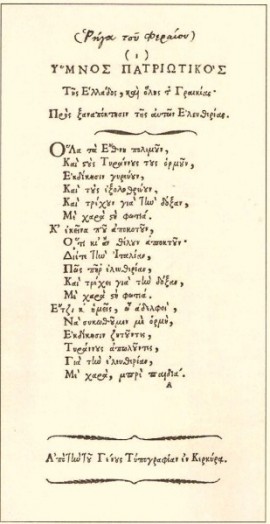 (Ρήγα τοῦ Φεραίου)
(1)
ΥΜΝΟΣ ΠΑΤΡΙΩΤΙΚΟΣ
Τῆς Ἑλλάδος, καὶ ὅλης τ Γραικίας
Πρὸς ξαναπόκτησιν τῆς αὐτῶν Ἐλευθερίας.
Ὅλα τὰ Ἔθνη πολεμῦν,
Καὶ τὺς Τυράννυς τυς ὁρμῦν,
Ἐκδίκησιν γυρεύυν,
Καὶ τὺς ἐξολοθρεύυν,
Καὶ τρέχυν γιὰ τὴν δόξαν,
Μὲ χαρὰ ςὴ φωτιά.
Κ' ἐκεῖνα πῦ ἀποκτῦν,
Ὅ,τι κι' ἂν θέλυν ἀποκτῦν·
Διέτε τὴν Ἰταλίαν,
Πῶς πῆρ' ἐλευθερίαν,
Καὶ τρέχει γιὰ τὴν δόξαν,
Μὲ χαρὰ ςὴ φωτιά.
Ἔτζι κ' ἡμεῖς, ὦ ἀδελφοὶ,
Νὰ συκωθῦμεν μὲ ὁρμὴ,
Ἐκδίκησιν ζητῦντες,
Τυράννυς ἀπωλῦντες,
Γιὰ τὴν ἐλευθερίαν,
Μὲ χαρὰ, μπρὲ παιδιά.
Α
Ἀπὸ τὴν τῦ Γένυς Τυπογραφίαν ἐν Κερκύρᾳ.